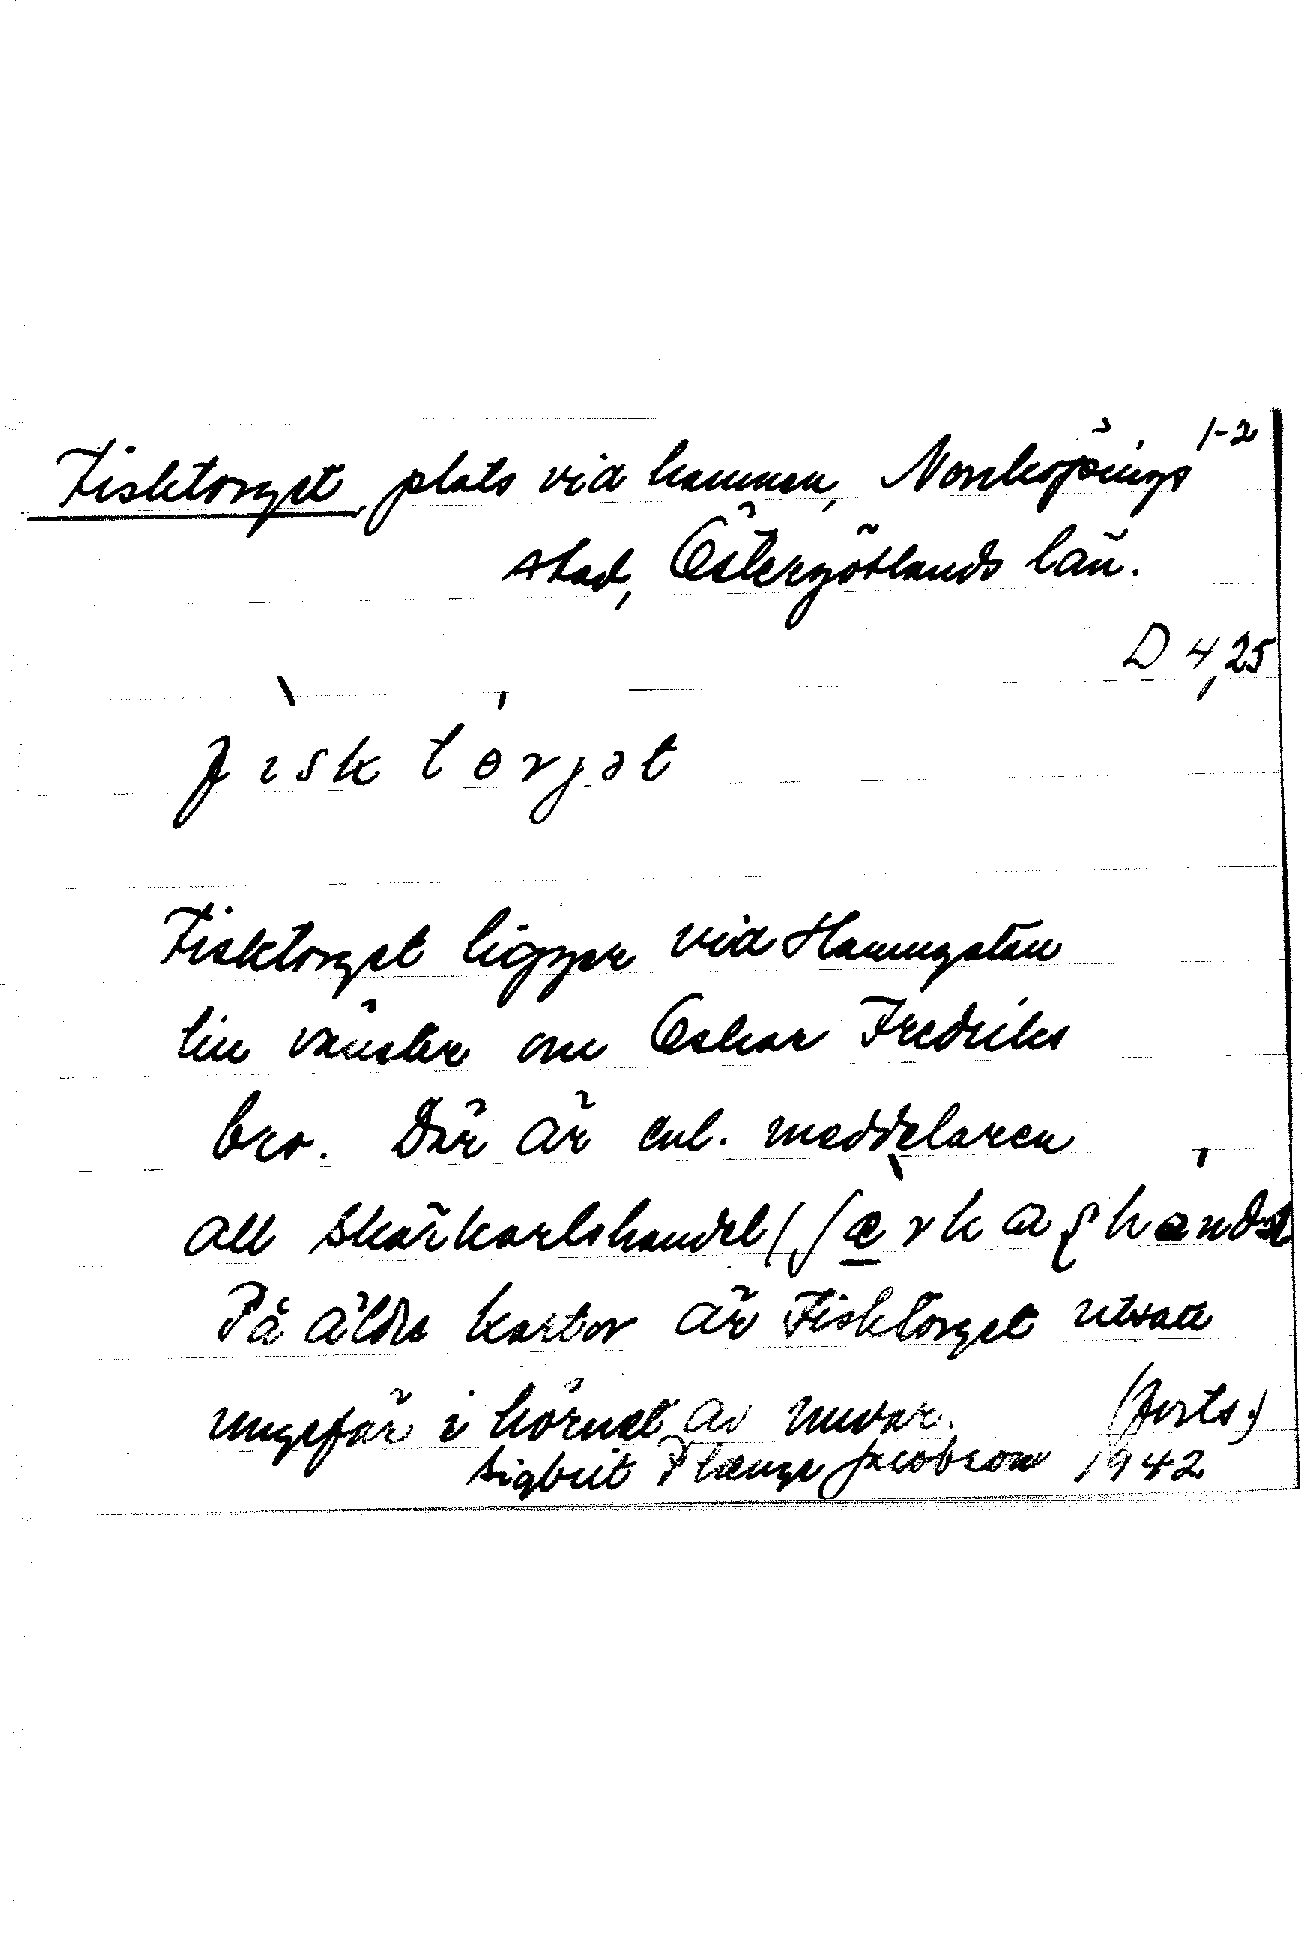 1-2
Fisktorget, plats vid hamnen, Norrköpings
stad, Östergötlands län.
D 4,25
fìsktɵ́rjət
Fisktorget ligger vid Hamngatan
till vänster om Oskar Fredriks
bro. Där är enl. meddelaren
all skärkarlshandel (
På äldre kartor är Fisktorget utsatt
ungefär i hörnet av nuvar. (forts.)
Sigbrit Plænge Jacobson 1942